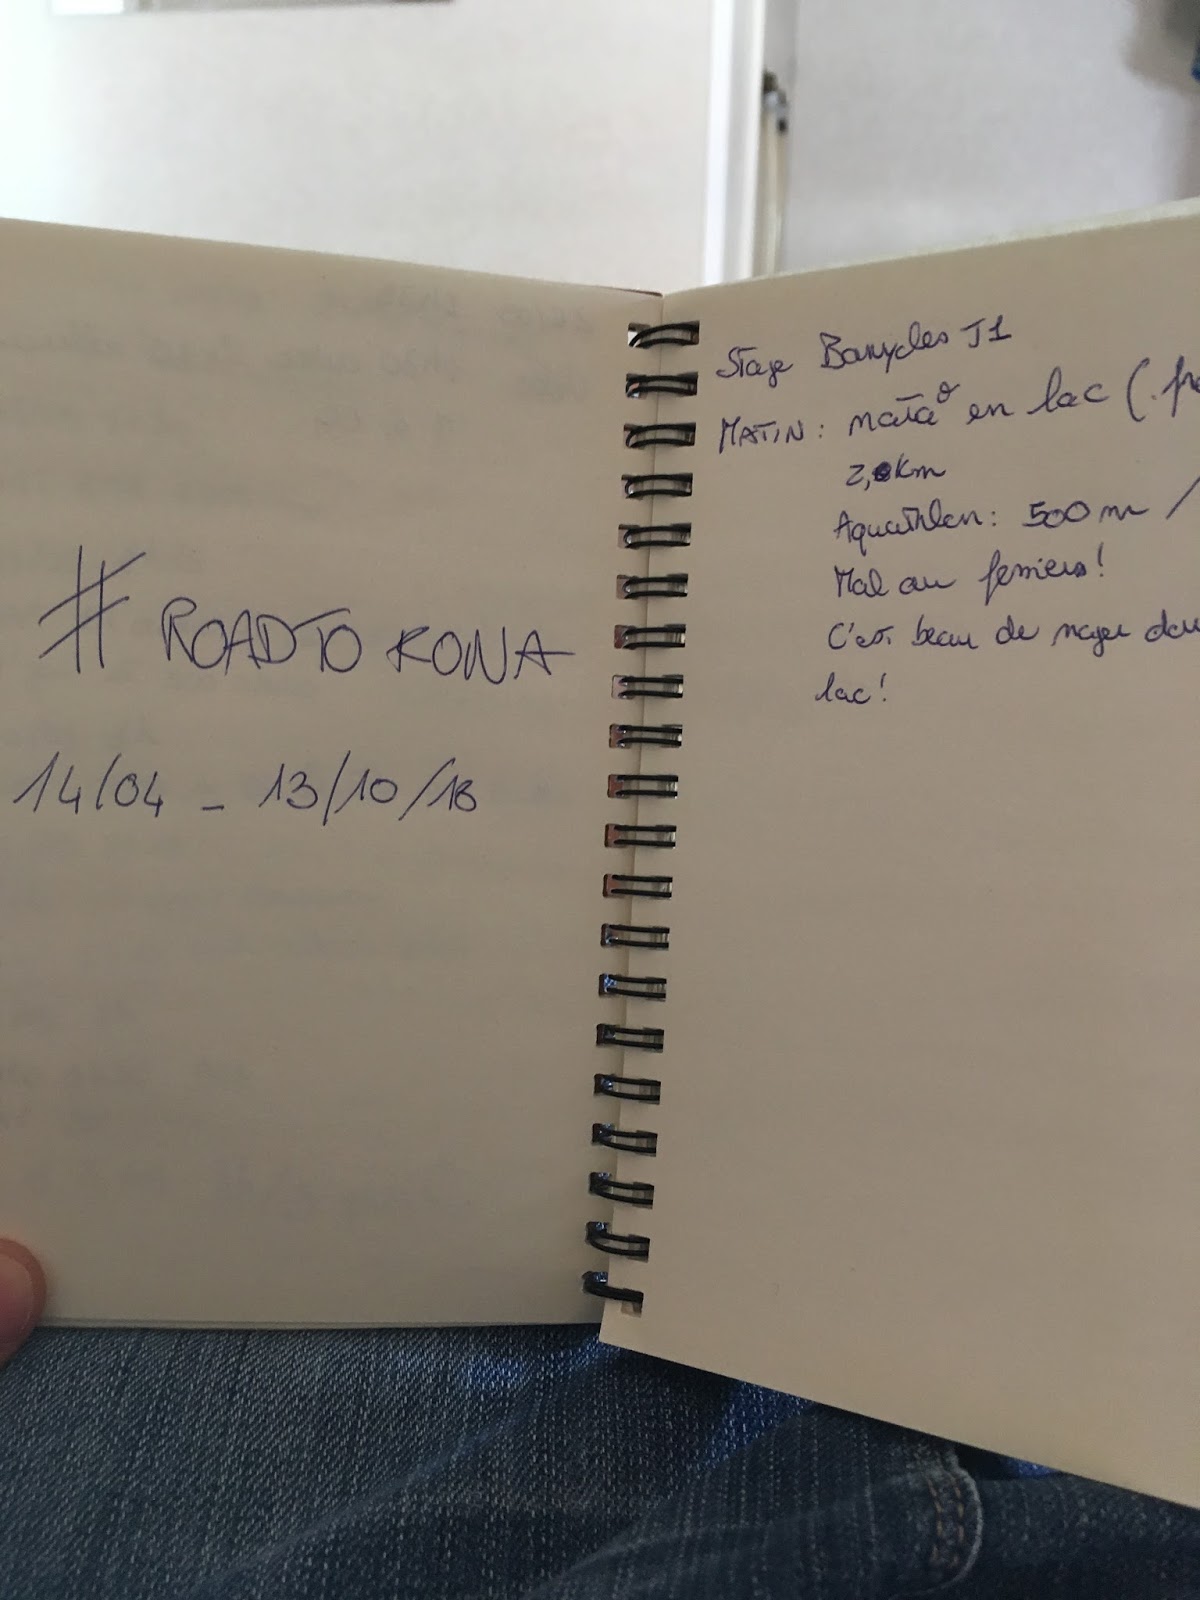 # ROAD TO KONA
14/04 - 13/10/18
Stage Banyoles J1
MATIN: nata° en lac (
2,0km
Aquathlon: 500m /
Mal au fessiers!
C'est beau de nager dans
lac!